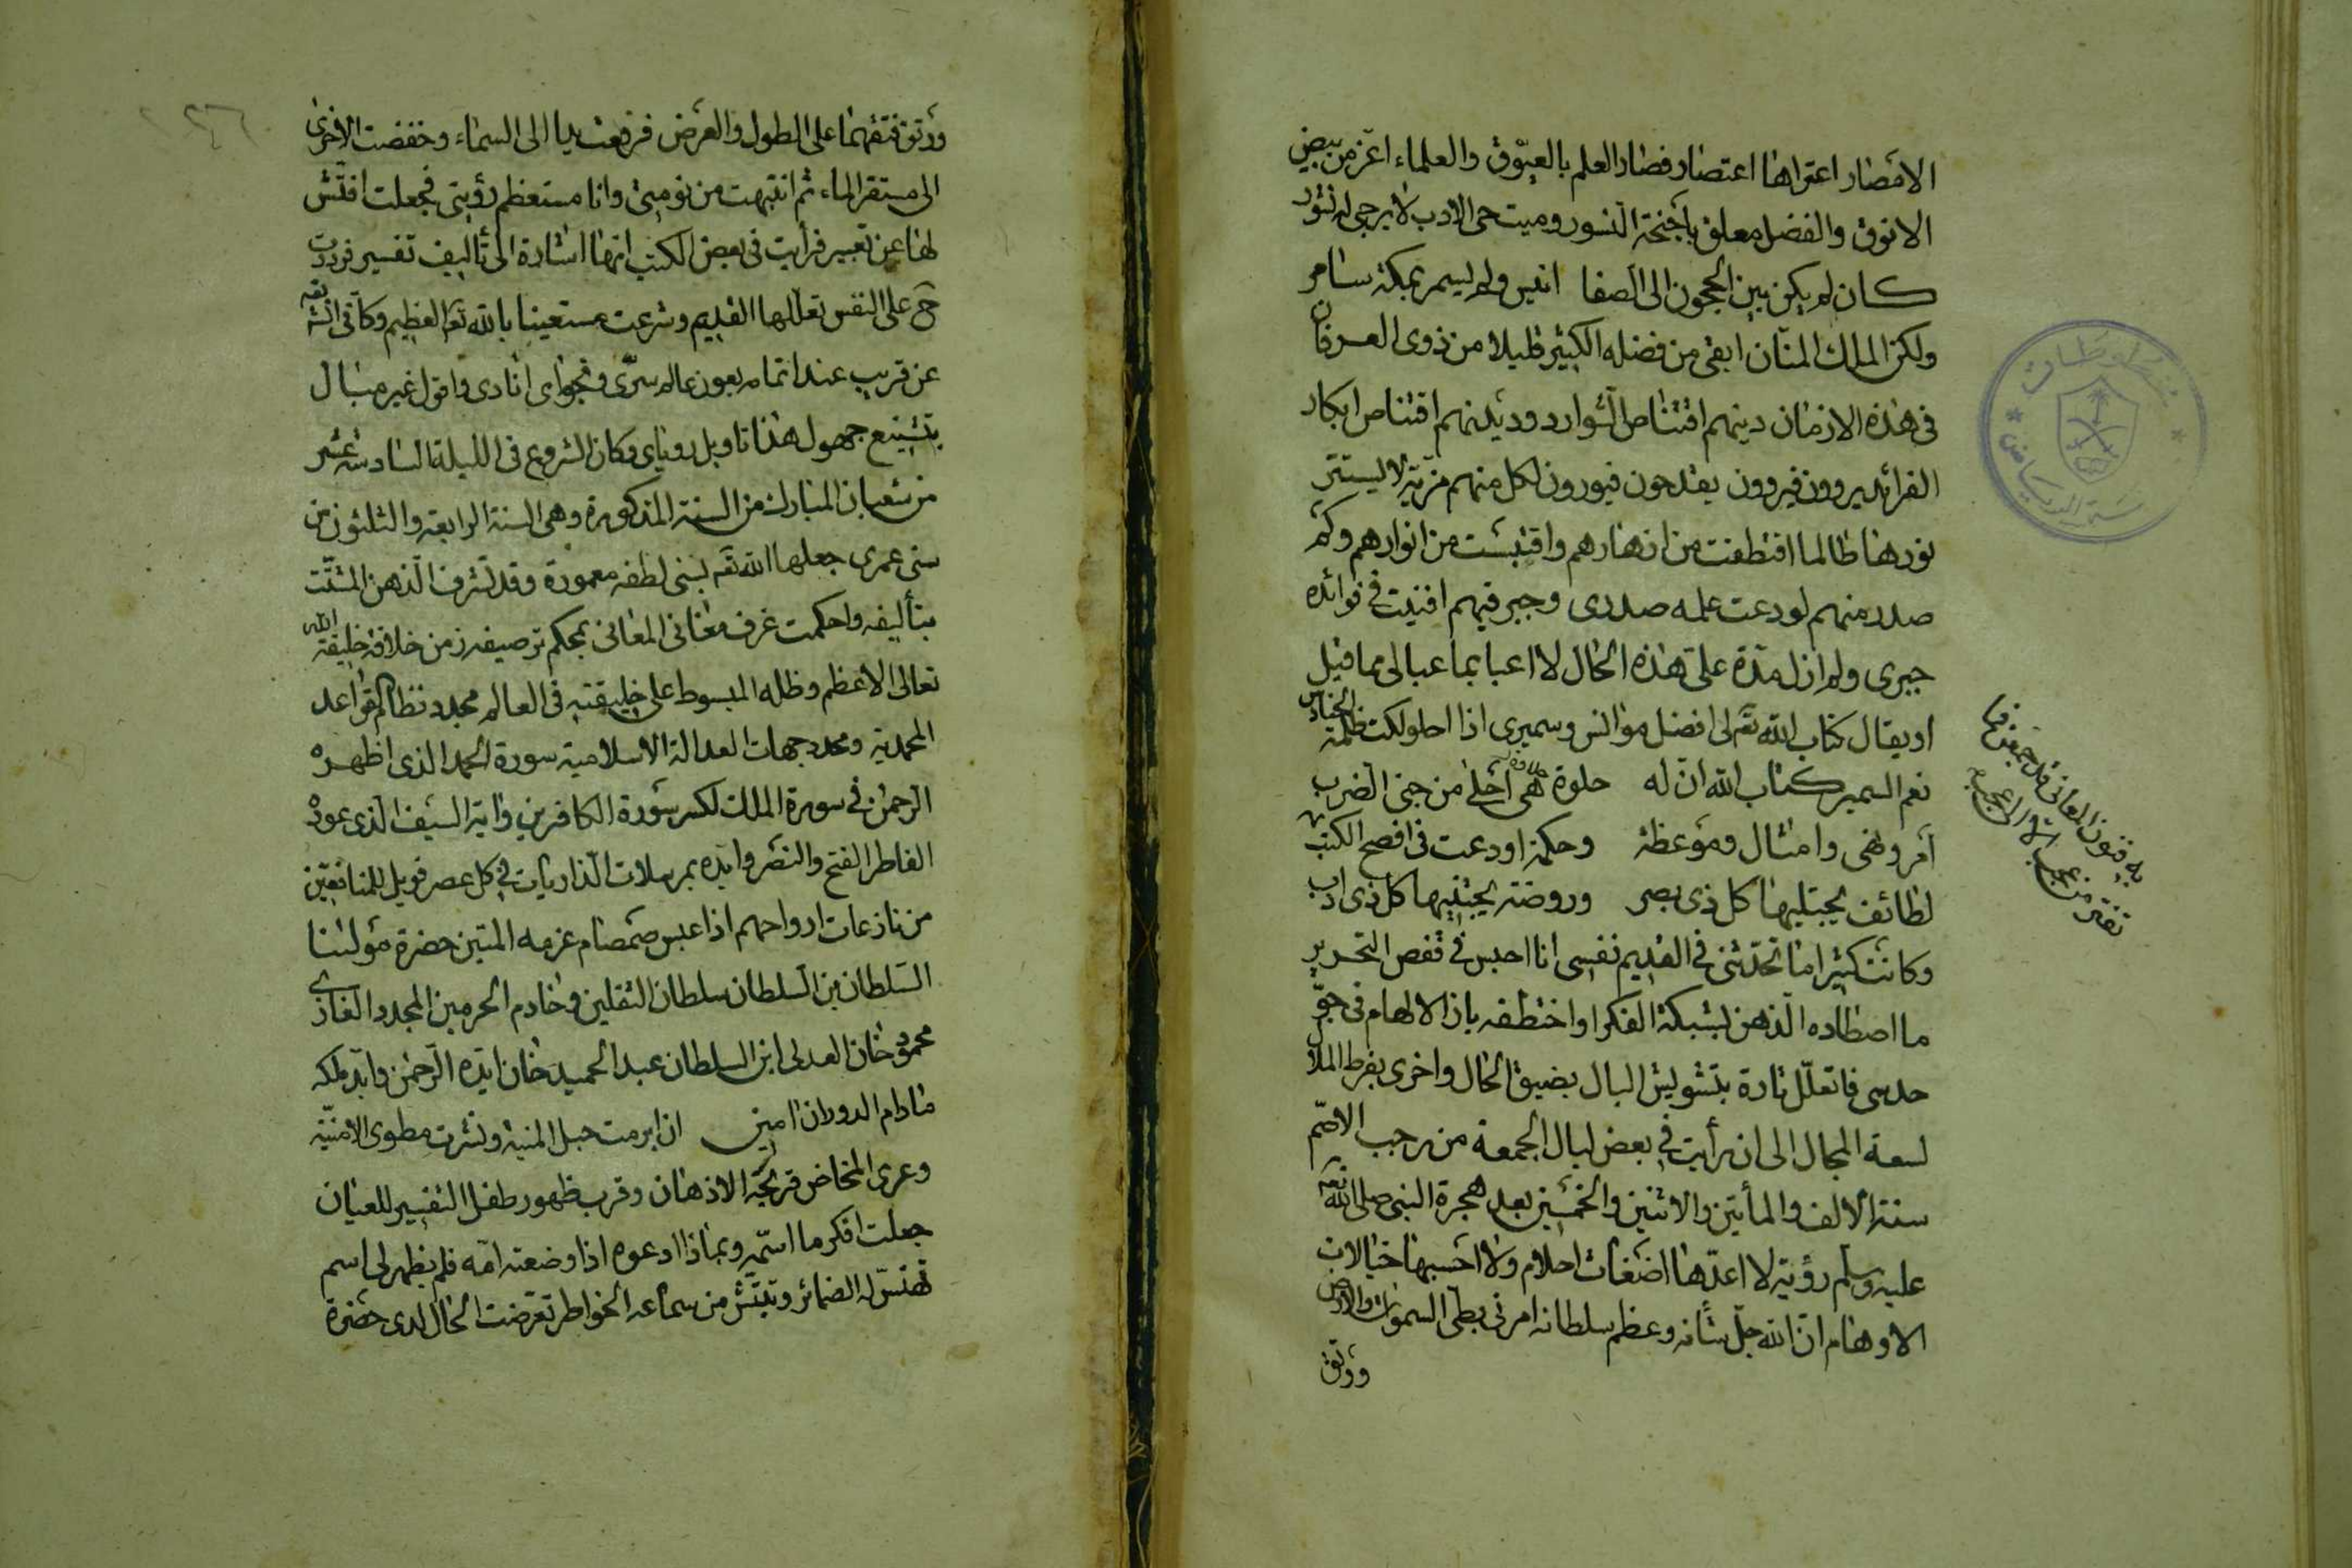 الامصار اعتراها اعتصار فصار العلم بالعيّوق والعلماء اعزّ من بيض
الانوق والفضل معلق باجنحة النسور وميت حى الادب لا يرجى له نشور
كان لم يكن بين الحجون الى الصفا انيس ولم يسمر بمكة سامر
ولكن الملك المنّان ابقى من فضله الكثير قليلا من ذوى العرفان
فى هذه الازمان دينهم اقتناص الشوارد وديدنهم اقتناص ابكار
الفرائد يروون فيروون يقدحون فيورون لكل منهم مزيّة لا يستتر
نورها طالما اقتطفت من ازهارهم واقتبست من انوارهم وكم
صدر منهم اودعت علمه صدرى وحبر فيهم افنيت فى فوائده
حبرى ولم ازل مدّة على هذه الحال لا اعبا بما عبا لى مما قيل
او يقال كتاب الله تع لى افضل موانس وسميرى اذا احلولكت ظلمة الحنادس
نعم السمير كتاب الله انّ له حلاوة هى احلى من جنى الضرب
به فنون المعانى قد جمعن فما
تفتر من عجب الا الى عجب
امر ونهى وامثال وموعظة وحكمة اودعت فى افصح الكتب
لطائف يجتليها كل ذى بصر وروضة يجتنيها كل ذى ادب
وكانت كثيرا ما تحدّثنى فى القديم نفسى انا احبس فى قفص التحرير
ما اصطاده الذهن بشبكة الفكر او اختطفه باز الالهام فى جوّ
حدسى فاتعلّل تارة بتشويش البال بضيق الحال واخرى بفرط الملال
لسعة المجال الى ان رأيت فى بعض ليال الجمعة من رجب الاصمّ
سنة الالف والمأتين والاثنين والخمسين بعد هجرة النبى صلى الله تع
عليه وسلم رؤية لا اعدّها اضغاث احلام ولا احسبها خيالات
الاوهام انّ الله جلّ شأنه وعظم سلطانه امرنى بطى السموات والارض
ورتق
ورتق فتقهما على الطول والعرض فرفعت يدا الى السماء وخفضت الاخرى
الى مستقر الماء ثم انتبهت من نومتى وانا مستعظم رؤيتى فجعلت افتّش
لها عن تعبير فرأيت فى بعض الكتب انها اشارة الى تأليف تفسير فرددت
ح على النفس تعلّلها القديم وشرعت مستعينا بالله تع العظيم وكأنى ان شاء الله تع
عن قريب عند اتمامه بعون عالم سرّى ونجواى انادى واقول غير مبال
بتشنيع جهول هذا تاويل رؤياى وكان الشروع فى الليلة السادسة عشر
من شعبان المبارك من السنة المذكورة وهى السنة الرابعة والثلثون من
سنى عمرى جعلها الله تع بسنى لطفه معمورة وقد تشرف الذهن المشتّت
بتأليفه واحكمت غرف مغانى المعانى بمحكم ترصيفه زمن خلافة خليفة الله
تعالى الاعظم وظله المبسوط على خليقته فى العالم مجدد نظام القواعد
المحمدية ومحدد جهات العدالة الاسلامية سورة الحمد الذى اظهره
الرحمن فى سورة الملك لكسر سورة الكافرين واية السيف الذى عوده
الفاطر الفتح والنصر وايّده بمرسلات الذاريات فى كل عصر فويل للمنافقين
من نازعات ارواحهم اذا عبس صمصام عزمه المتين حضرة مولينا
السلطان بن السلطان سلطان الثقلين وخادم الحرمين المجدد الغازى
محمود خان العدلى ابن السلطان عبد الحميد خان ايّده الرحمن وابّد ملكه
مادام الدوران امين ان ابرمت حبل المنية ونشرت مطوى الامنيّة
وعرى المخاض قريحة الاذهان وقرب ظهور طفل التفسير للعيان
جعلت افكر ما اسمّيه وبماذا ادعوه اذا وضعته امّه فلم يظهر لى اسم
تهتشّ له الضمائر وتبتشّ من سماعه الخواطر تعرّضت الحال لدى حضرة